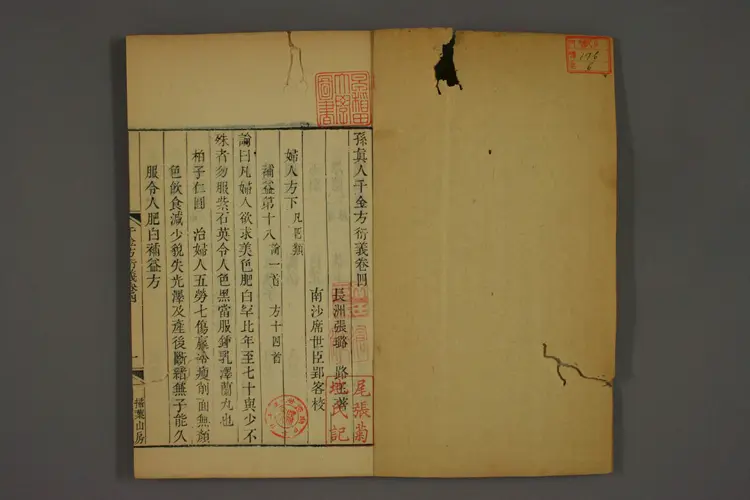 孫真人千金方衍義卷四
長洲張璐路玉著
南沙席世臣郢客校
婦人方下 凡四類
補益第十八 論一首 方十四首
論曰凡婦人欲求美色肥白罕比年至七十與少不
殊者勿服紫石英令人色黑當服鍾乳澤蘭丸也
柏子仁圓 治婦人五勞七傷羸冷瘦削面無顏
色飲食減少貌失光澤及產後斷緒無子能久
服令人肥白補益方
千金方衍義卷四
一
掃葉山房
早稻田大學圖書
尾張菊
氏記